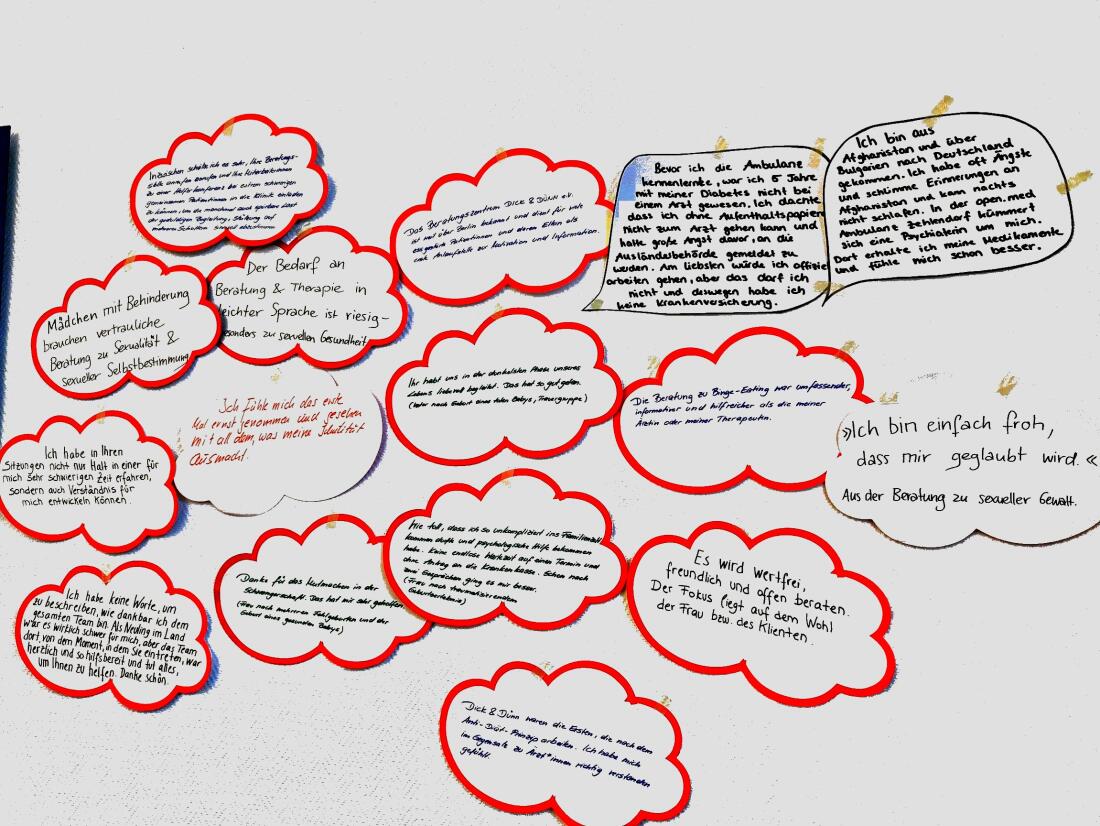 Inzwischen schätze ich es sehr, Ihre Beratungs-
stelle anrufen und Ihre Mitarbeiterinnen
zu einer Helferkonferenz bei extrem schwierigen
gemeinsamen Patientinnen in die Klinik einladen
zu können, um die manchmal auch spürbare Last
der geduldigen Begleitung, Stützung auf
mehrere Schultern
Das Beratungszentrum DICK & DÜNN e.V.
ist weit über Berlin bekannt und dient für viele
essgestörte Patientinnen und deren Eltern als
erste Anlaufstelle zur Motivation und Information.
Bevor ich die Ambulanz
kennenlernte, war ich 5 Jahre
mit meiner Diabetes nicht bei
einem Arzt gewesen. Ich dachte
dass ich ohne Aufenthaltspapiere
nicht zum Arzt gehen kann und
hatte große Angst davor, an die
Ausländerbehörde gemeldet zu
werden. Am liebsten würde ich offiziell
arbeiten gehen, aber das darf ich
nicht und deswegen habe ich
keine Krankenversicherung.
Ich bin aus
Afghanistan und über
Bulgarien nach Deutschland
gekommen. Ich habe oft Ängste
und schlimme Erinnerungen an
Afghanistan und kann nachts
nicht schlafen. In der open.med
Ambulanz Zehlendorf kümmert
sich eine Psychiaterin um mich.
Dort erhalte ich meine Medikamente
und fühle mich schon besser.
Mädchen mit Behinderung
brauchen vertrauliche
Beratung zu Sexualität &
sexueller Selbstbestimmung
Der Bedarf an
Beratung & Therapie in
leichter Sprache ist riesig –
besonders zu sexuellen Gesundheit
Ihr habt uns in der dunkelsten Phase unseres
Lebens liebevoll begleitet. Das hat so gut getan.
(Vater nach Geburt eines toten Babys, Trauergruppe)
Die Beratung zu Binge-Eating war umfassender,
informativer und hilfreicher als die meiner
Ärztin oder meiner Therapeutin.
»Ich bin einfach froh,
dass mir geglaubt wird.«
Aus der Beratung zu sexueller Gewalt.
Ich fühle mich das erste
Mal ernst genommen und gesehen
mit all dem, was meine Identität
ausmacht.
Ich habe in Ihren
Sitzungen nicht nur Halt in einer für
mich sehr schwierigen Zeit erfahren,
sondern auch Verständnis für
mich entwickeln können.
Wie toll, dass ich so unkompliziert ins Familiencafé
kommen durfte und psychologische Hilfe bekommen
habe. Keine endlose Wartezeit auf einen Termin und
ohne Antrag an die Krankenkasse. Schon nach
zwei Gesprächen ging es mir besser.
(Frau nach traumatisierendem
Geburtserlebnis)
Danke für das Mutmachen in der
Schwangerschaft. Das hat mir sehr geholfen.
(Frau nach mehreren Fehlgeburten und der
Geburt eines gesunden Babys)
Es wird wertfrei,
freundlich und offen beraten.
Der Fokus liegt auf dem Wohl
der Frau bzw. des Klienten.
Ich habe keine Worte, um
zu beschreiben, wie dankbar ich dem
gesamten Team bin. Als Neuling im Land
war es wirklich schwer für mich, aber das Team
dort, von dem Moment, in dem Sie eintreten, war
herzlich und so hilfsbereit und tut alles,
um Ihnen zu helfen. Danke schön.
Dick & Dünn waren die Ersten, die nach dem
Anti-Diät-Prinzip arbeiten. Ich habe mich
im Gegensatz zu Ärzt*innen richtig verstanden
gefühlt.